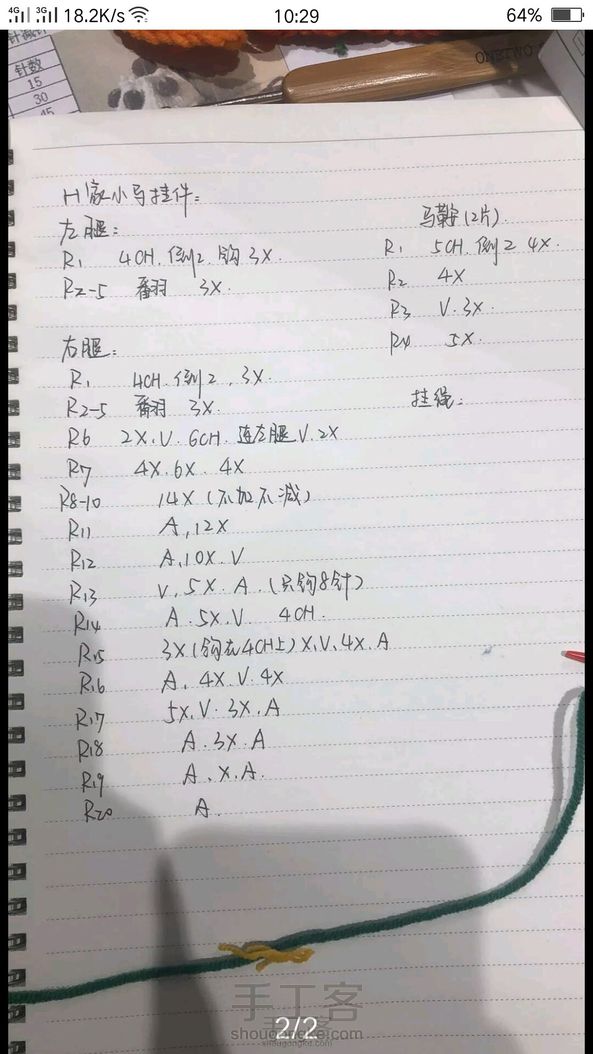 4G 3G 18.2K/s 10:29 64%
针数
15
30
45
ONETWO
H家小马挂件:
左腿:
R1 4CH.倒2.钩3X.
R2-5 翻羽 3X.
右腿:
R1 4CH.倒2.3X.
R2-5 翻羽 3X.
R6 2X.V.6CH.连左腿V.2X
R7 4X.6X.4X
R8-10 14X(不加不减)
R11 A,12X
R12 A,10X.V
R13 V.5X.A.(只钩8针)
R14 A.5X.V. 4CH.
R15 3X(钩在4CH上)X.V.4X.A
R16 A.4X.V.4X
R17 5X.V.3X.A
R18 A.3X.A
R19 A.X.A.
R20 A.
马鞍(2片).
R1 5CH.倒2 4X.
R2 4X
R3 V.3X.
R4 5X.
挂绳:
手工客
2/2
shougongke.com